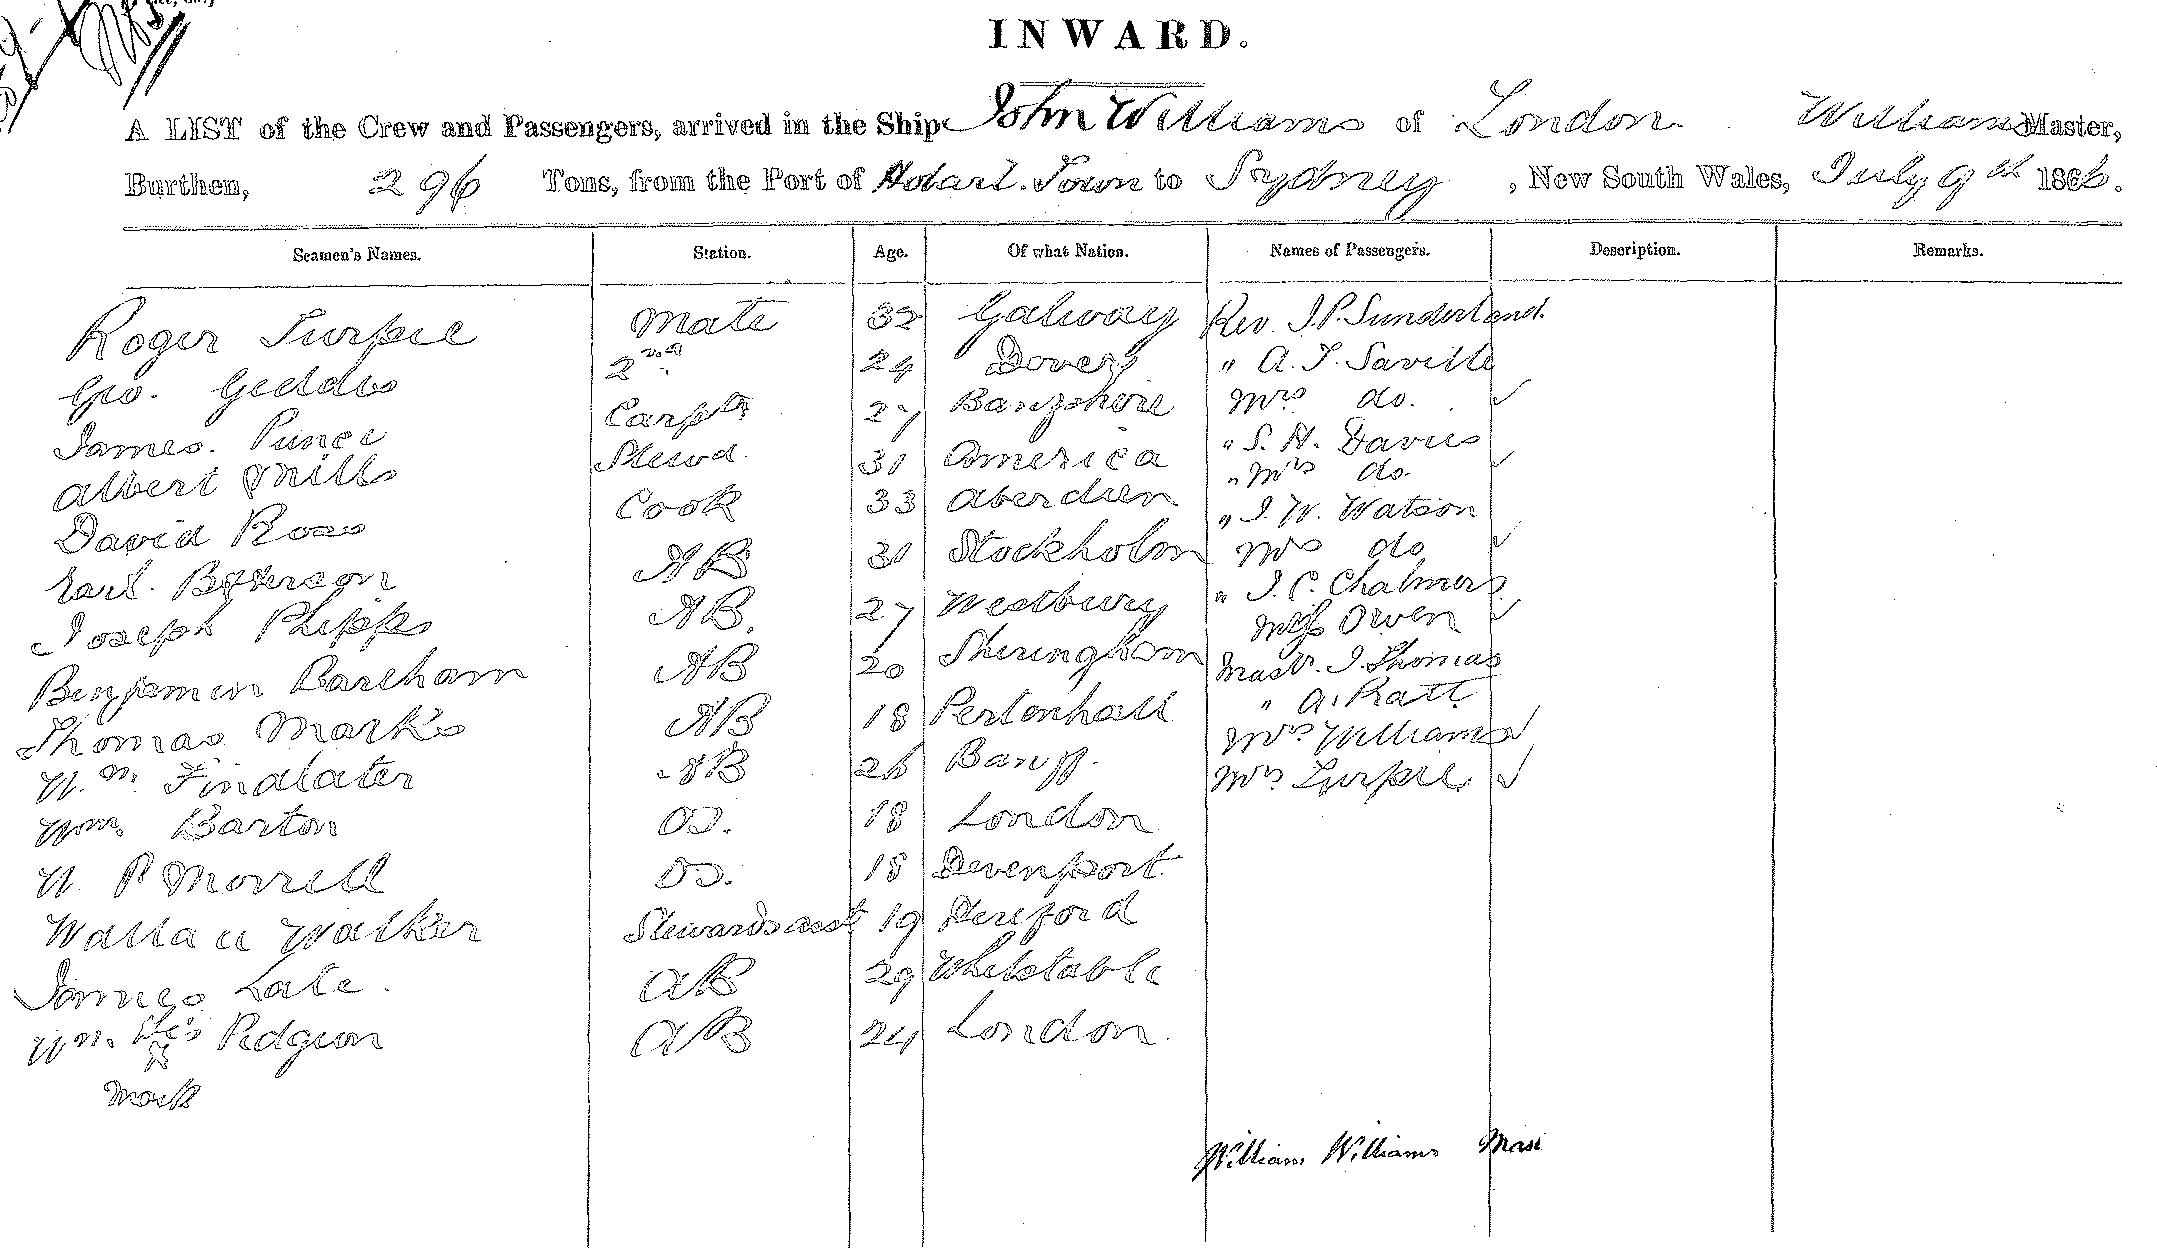 INWARD.
A LIST of the Crew and Passengers, arrived in the Ship John Williams of London Williams Master,
Burthen, 296 Tons, from the Port of Hobart Town to Sydney, New South Wales, July 9th 1866.
Seamen's Names. Station. Age. Of what Nation. Names of Passengers. Description. Remarks.
Roger Turpie Mate 32 Galway Rev. J.P. Sunderland.
Geo. Geddes 2nd 24 Dover " A. T. Saville
James. Punce Carptr 27 Banffshire Mrs do.
" S. H. Davies
Albert Mills Stewd. 31 America " Mrs do.
David Ross Cook 33 Aberdeen " J. W. Watson
Peterson AB 31 Stockholm Mrs do
" J. C. Chalmers
Joseph Phipps AB. 27 Westbury Miss Owen
Benjamin Barcham AB 20 Sheringham Mastr. J. Thomas
" A. Pratt
Thomas Marks AB 18 Pertenhall Mrs Williams
Wm. Findlater AB 26 Banff. Mrs Turpie
Wm. Barton OS. 18 London
W. P Morrell OS. 18 Devenport
Wallace Walker Stewards asst 19 Hereford
James Late. AB 29 Whitstable
Wm. his x Pidgeon AB 24 London.
mark
William Williams Mast